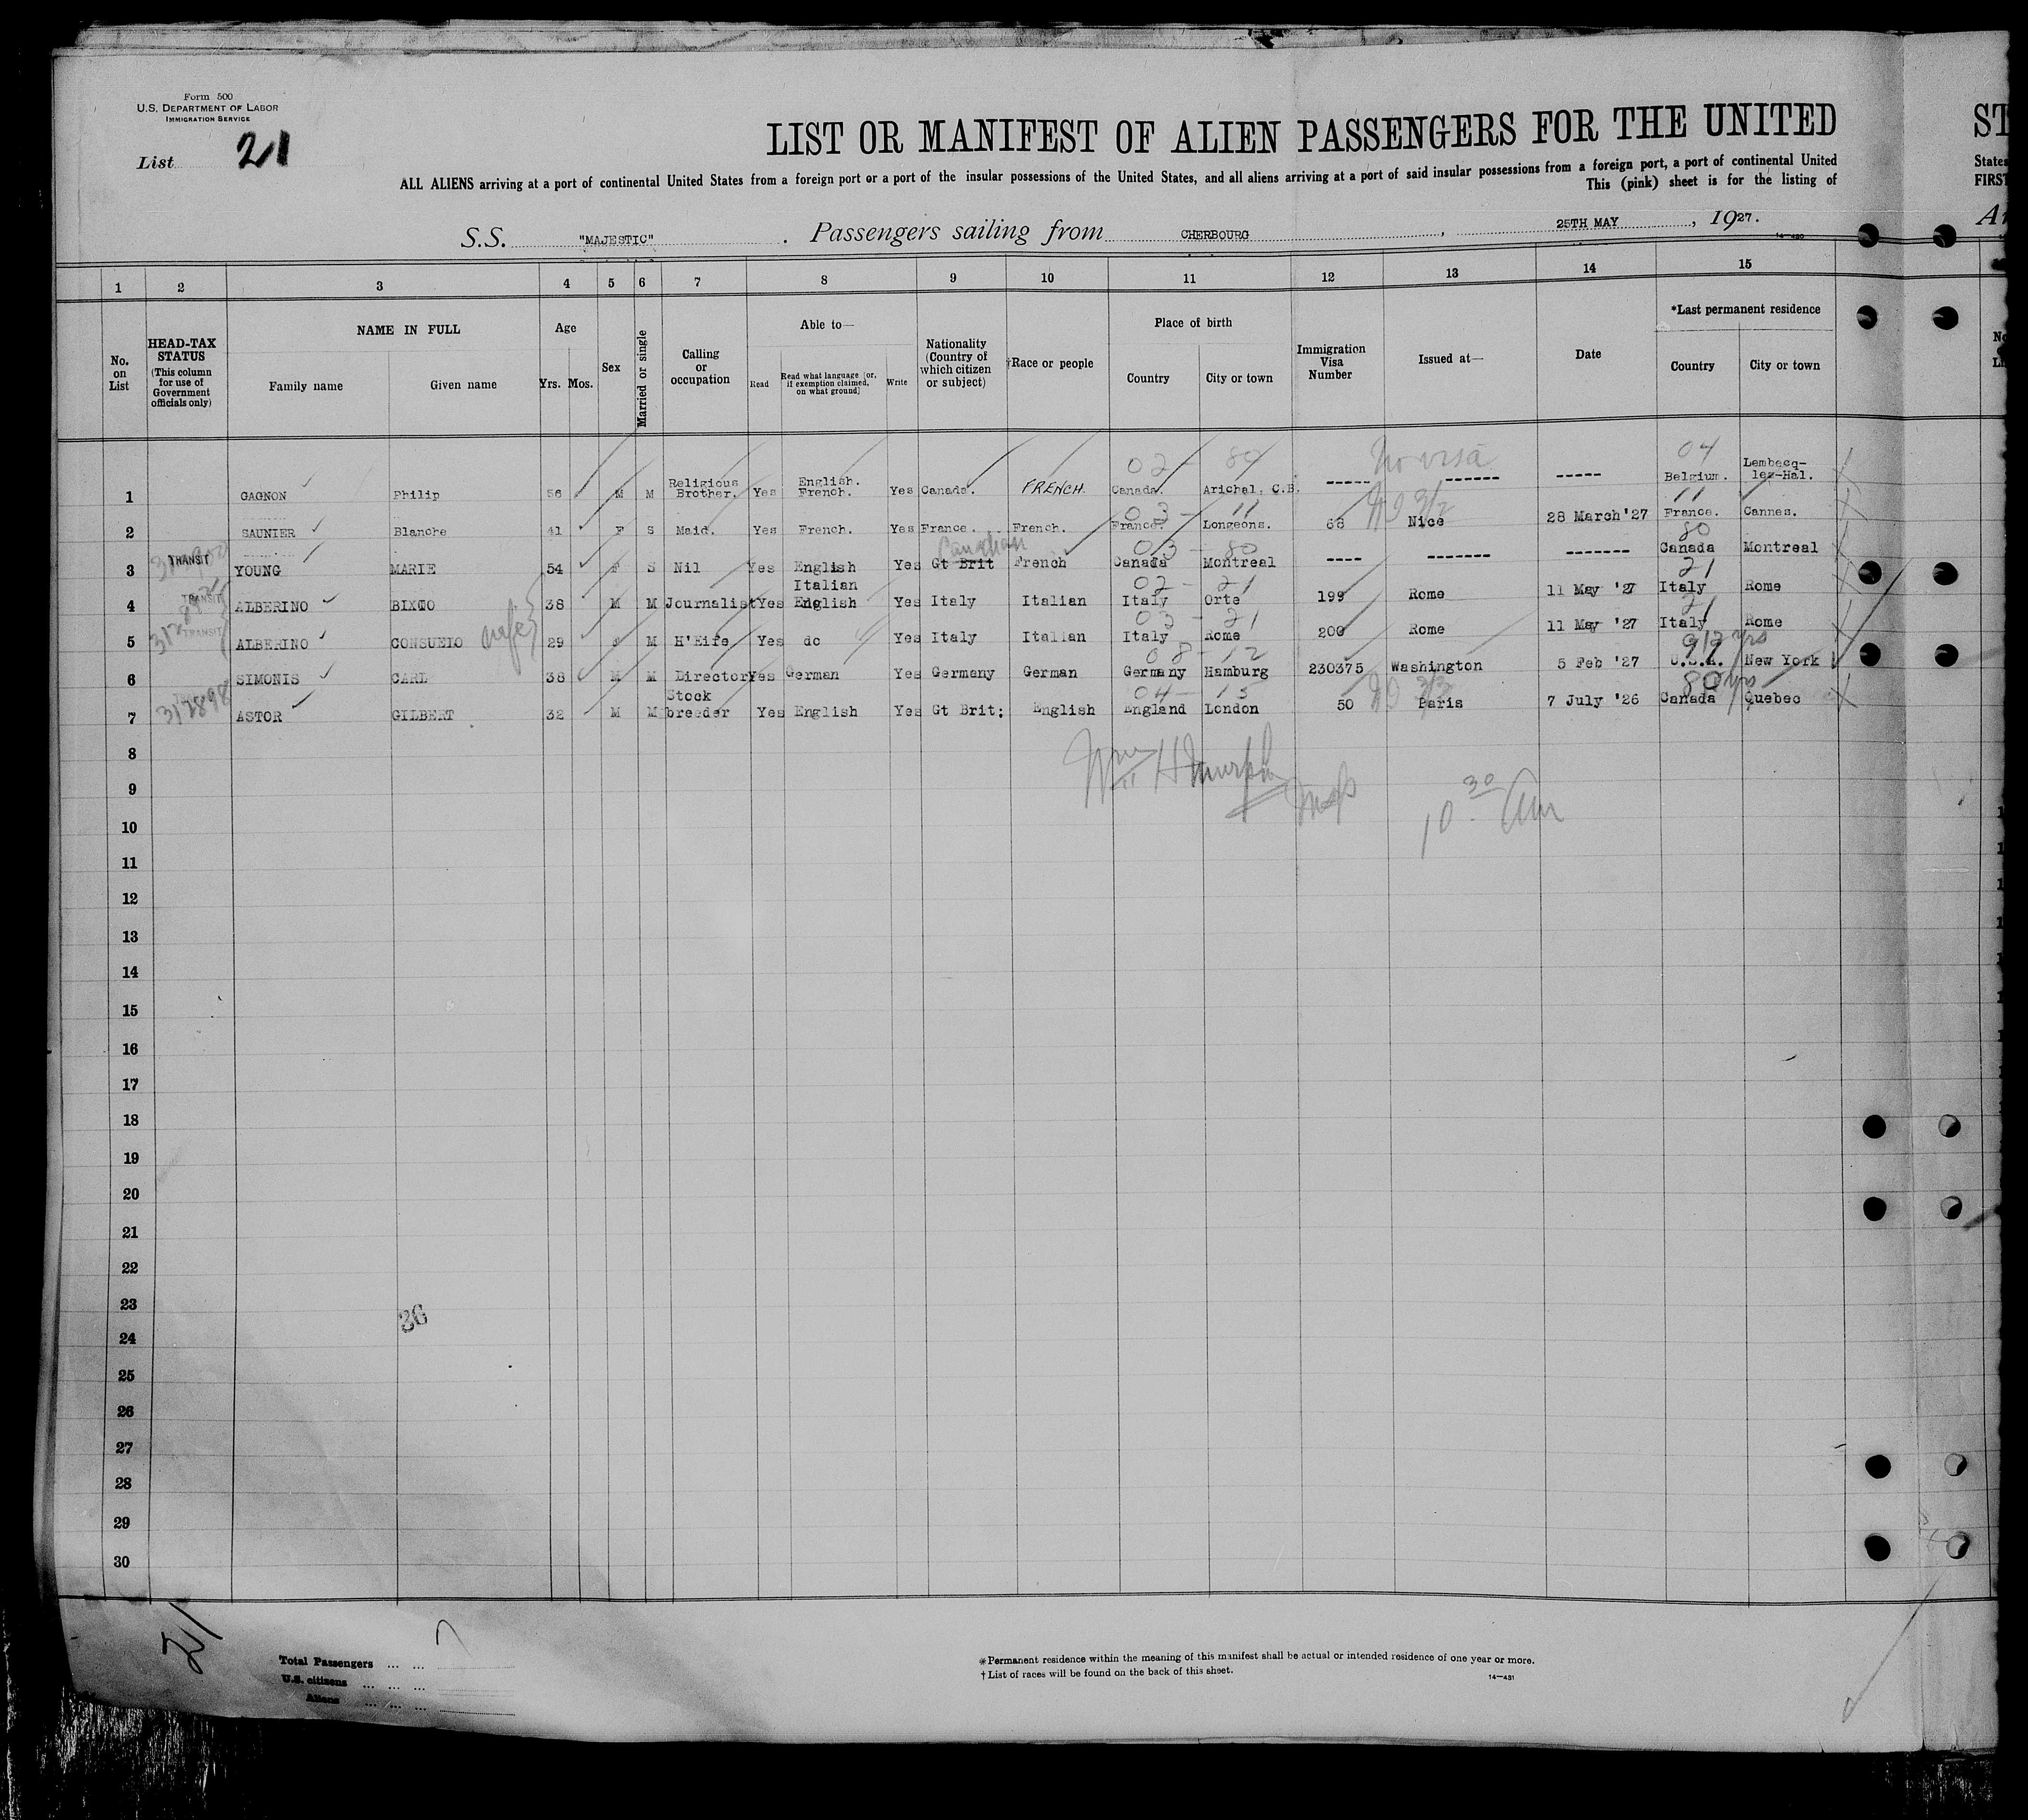 Form 500
U.S. DEPARTMENT OF LABOR
IMMIGRATION SERVICE
List 21
LIST OR MANIFEST OF ALIEN PASSENGERS FOR THE UNITED
ALL ALIENS arriving at a port of continental United States from a foreign port or a port of the insular possessions of the United States, and all aliens arriving at a port of said insular possessions from a foreign port, a port of continental United
This (pink) sheet is for the listing of
ST
States
FIRST
S.S. "MAJESTIC" . Passengers sailing from CHERBOURG , 25TH MAY , 1927.
14-430
1 2 3 4 5 6 7 8 9 10 11 12 13 14 15
No. on List
HEAD-TAX STATUS (This column for use of Government officials only)
NAME IN FULL
Family name Given name
Age
Yrs. Mos.
Sex
Married or single
Calling or occupation
Able to—
Read
Read what language [or, if exemption claimed, on what ground]
Write
Nationality (Country of which citizen or subject)
†Race or people
Place of birth
Country City or town
Immigration Visa Number
Issued at—
Date
*Last permanent residence
Country City or town
02 - 80 No visa 04
1 GAGNON Philip 56 M M Religious Brother. Yes English. French. Yes Canada. FRENCH. Canada. Arichel, C.B. ----- ------ ----- Belgium. Lembecq-lez-Hal.
03 - 11 11
2 SAUNIER Blanche 41 F S Maid. Yes French. Yes France. French. France. Longeons. 68 Nice 28 March '27 France. Cannes.
Canadian 03 - 80 80
3 TRANSIT YOUNG MARIE 54 F S Nil Yes English Yes Gt Brit French Canada Montreal ---- ------- ------- Canada Montreal
02 - 21 21
4 TRANSIT ALBERINO BIXIO 38 M M Journalist Yes Italian English Yes Italy Italian Italy Orte 199 Rome 11 May '27 Italy Rome
03 - 21 21
5 TRANSIT ALBERINO CONSUELO wife 29 F M H'Eife Yes do Yes Italy Italian Italy Rome 200 Rome 11 May '27 Italy Rome
08 - 12
6 SIMONIS CARL 38 M M Director Yes German Yes Germany German Germany Hamburg 230375 Washington 5 Feb '27 U.S.A. New York
04 - 13 80
7 312898 ASTOR GILBERT 32 M M Stock breeder Yes English Yes Gt Brit: English England London 50 Paris 7 July '26 Canada Quebec
8
Wm H Murph
9
10 30 Am
10
11
12
13
14
15
16
17
18
19
20
21
22
23
36
24
25
26
27
28
29
30
21
Total Passengers ... ... 7
U.S. citizens ... ... ...
Aliens ... ... ...
*Permanent residence within the meaning of this manifest shall be actual or intended residence of one year or more.
†List of races will be found on the back of this sheet.
14-431